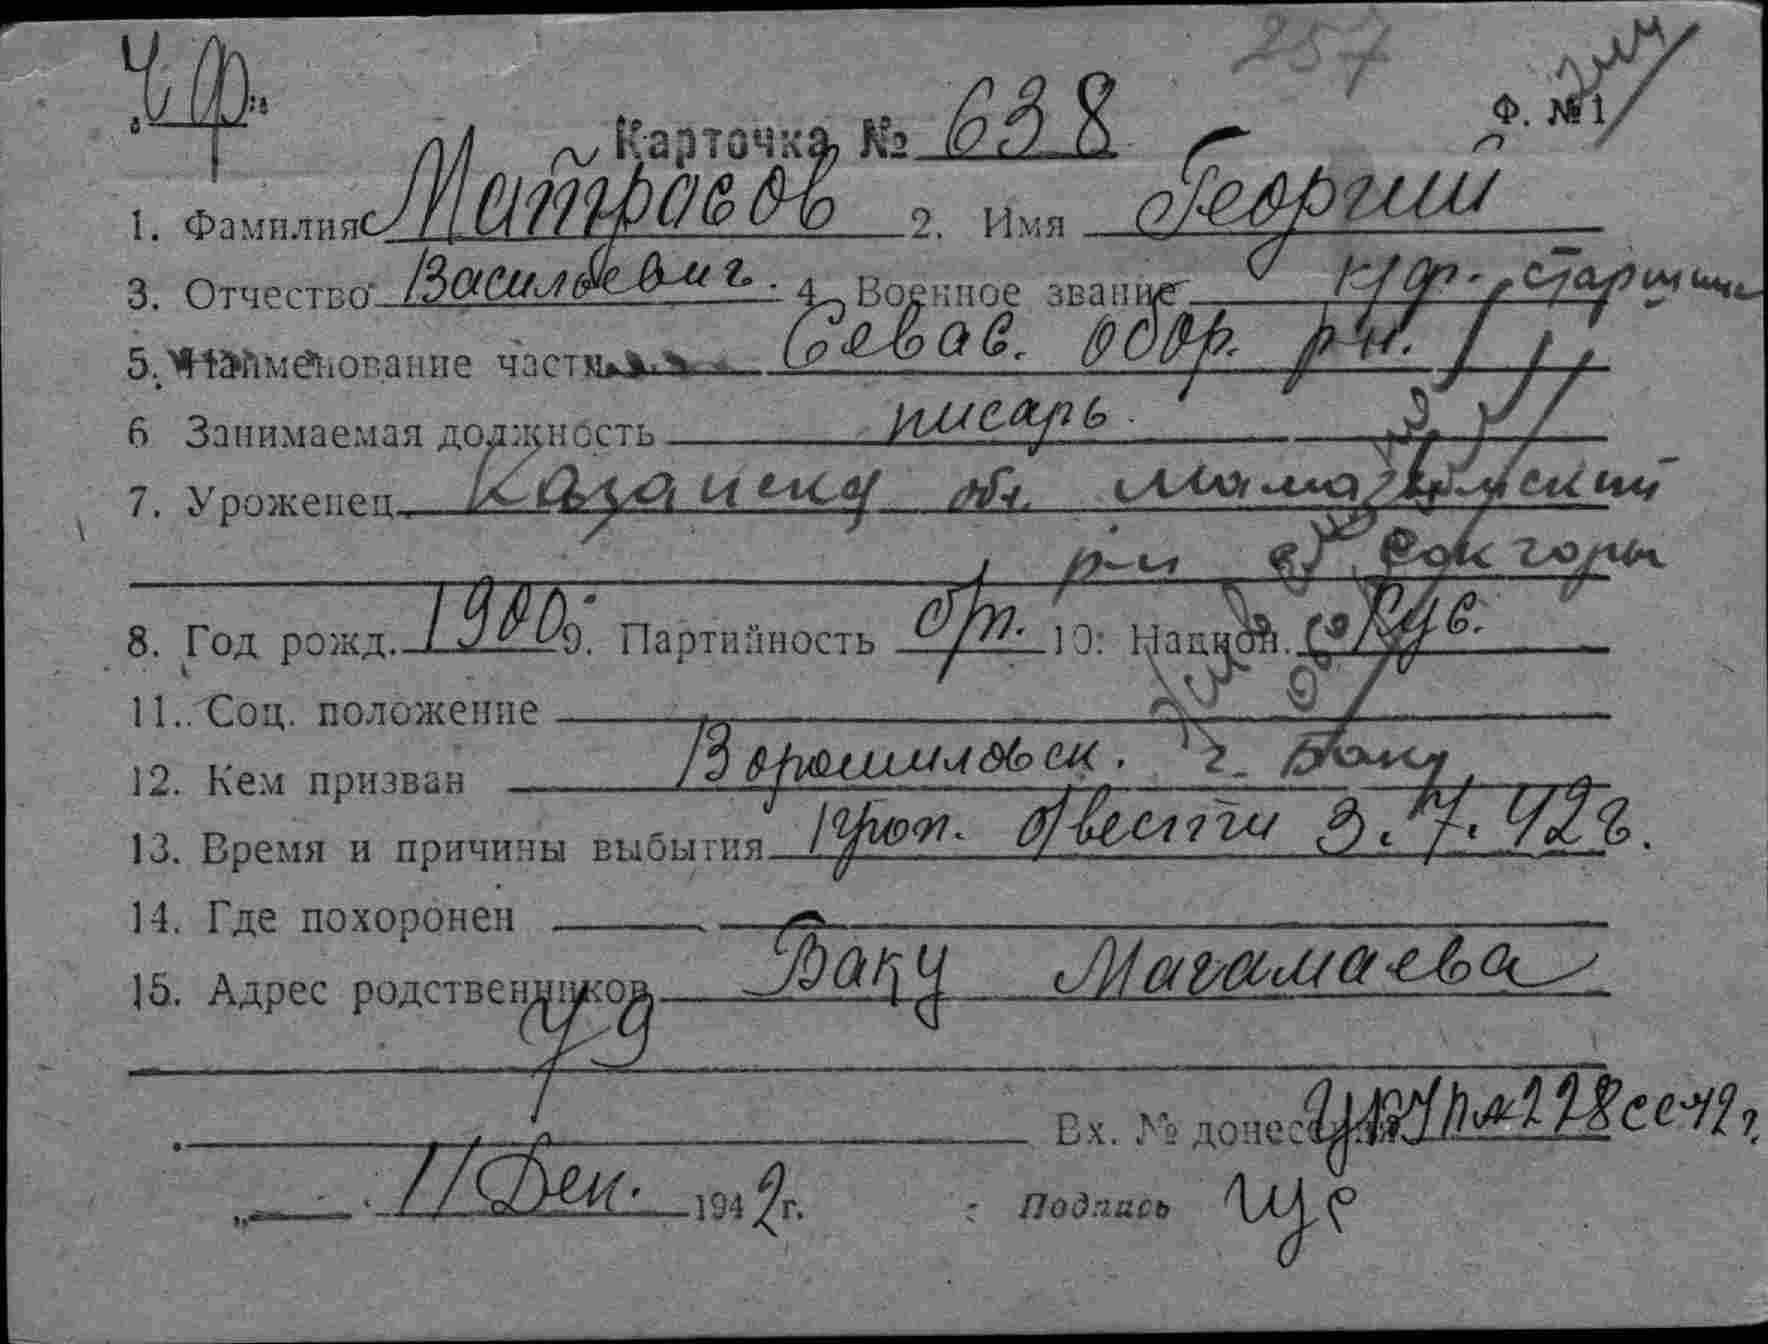 257
Ч.Ф.
Ф. №1
Карточка № 638
1. Фамилия Матрасов 2. Имя Георгий
3. Отчество Васильевич. 4. Военное звание кр.ф. старшина
5. Наименование части Севас. обор. р-н.
6 Занимаемая должность писарь
7. Уроженец Казанску обл.
р-н Сокгоры
8. Год рожд. 1900 9. Партийность б/п. 10. Национ. Рус.
11. Соц. положение
12. Кем призван Ворошиловск. г. Баку
13. Время и причины выбытия Проп. б/вести 3.7.42г.
14. Где похоронен
15. Адрес родственников Баку Магамаева
79
Вх. № донес 278сс42г.
11 Дек. 1942г. Подпись